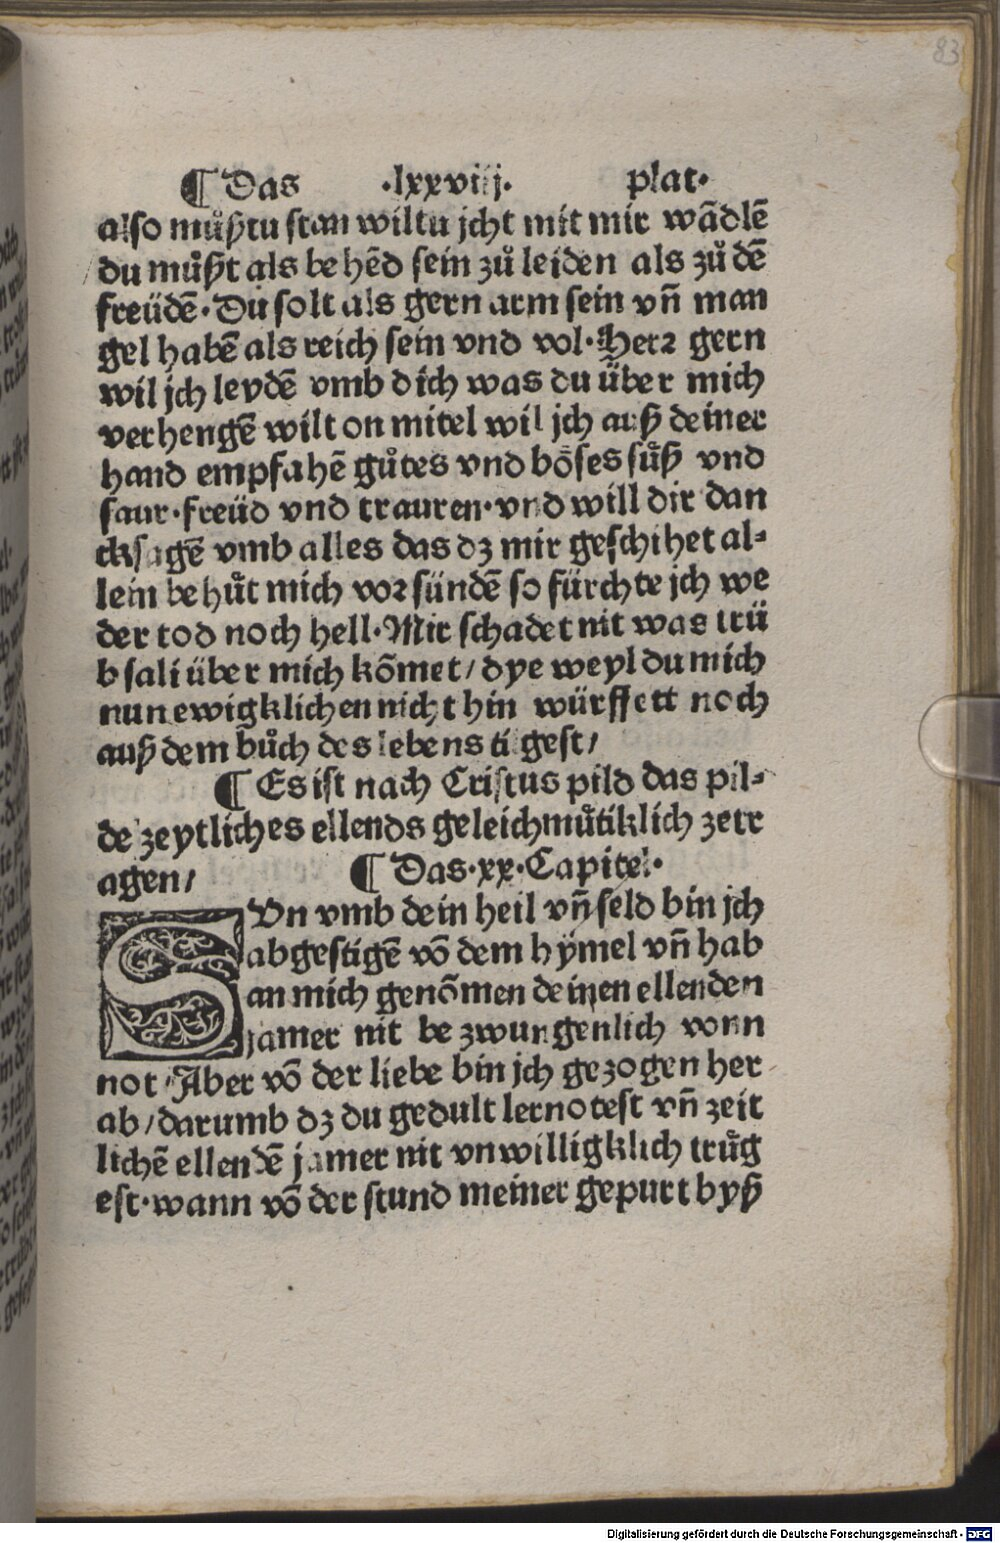 83
¶ Das ·lxxviij· plat·
also mu̇ßtu stan wiltu jcht mit mir wādlē
du mu̇ßt als behēd sein zů leiden als zů dē
freüdē· Du solt als gern arm sein vn̄ man
gel habē als reich sein vnd vol· Herꝛ gern
wil jch leydē vmb dich was du über mich
verhengē wilt on mitel wil jch auß deiner
hand empfahē gůtes vnd böses sůß vnd
saur·freüd vnd trauren·vnd will dir dan
cksagē vmb alles das dz mir geschihet al⸗
lein behůt mich voꝛ sündē so fürchte jch we
der tod noch hell· Mir schadet nit was trü
bsali über mich kōmet/ dye weyl du mich
nun ewigklichen nicht hin würffett noch
auß dem bůch des lebens tilgest/
¶ Es ist nach Cristus pild das pil⸗
de zeytliches ellends geleichmůtiklich zetr
agen/ ¶ Das·xx·Capitel·
SVn vmb dein heil vn̄ seld bin jch
abgestigē vō dem hÿmel vn̄ hab
an mich genōmen deinen ellenden
jamer nit bezwungenlich vonn
not/ Aber vō der liebe bin jch gezogen her
ab/darumb dz du gedult lernotest vn̄ zeit
lichē ellendē jamer nit vnwilligklich trůg
est·wann vō der stund meiner gepurt byß
Digitalisierung gefördert durch die Deutsche Forschungsgemeinschaft - DFG